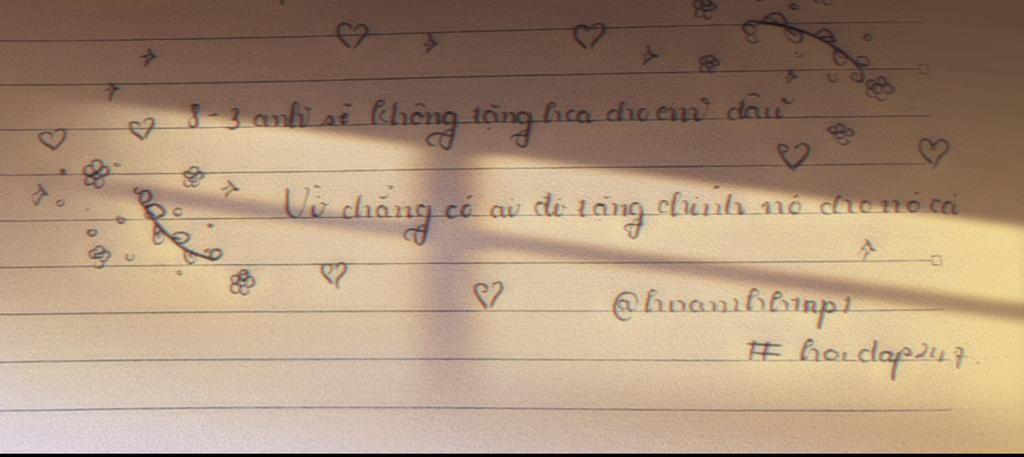 8-3 anh sẽ không tặng hoa cho em đâu
Vì chẳng có ai đi tặng chính nó cho nó cả
# hoidap247